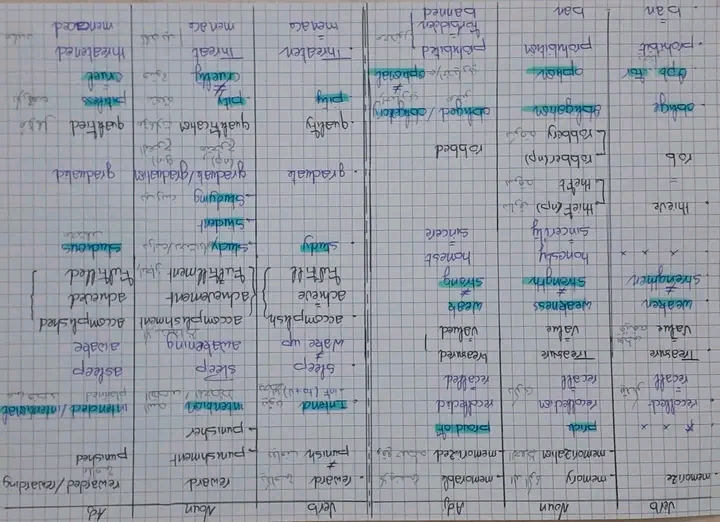 Verb Noun Adj
. memorize - memory - memorable
- memorization - memorized
* x x pride proud of
recollect recollection recollected
= recall recall recalled
. Treasure Treasure treasured
= value value valued
. weaken weakness weak
≠ strengthen strength strong
. x x x honesty honest
sincerity sincere
. thieve thief (np)
= theft
rob robber (np) robbed
robbery
. oblige obligation obliged / obligatory
. opt for option optional
. prohibit prohibition prohibited
= forbidden
. ban ban banned
Verb Noun Adj
. reward reward rewarded / rewarding
≠ punish - punishment punished
- punisher
. Intend intention intended / intentional
. sleep sleep asleep
≠ wake up awakening awake
. accomplish accomplishment accomplished
achieve achievement achieved
Fulfill Fulfillment Fulfilled
. study - study studious
- student
- studying
. graduate graduate / graduation graduated
(np)
. qualify qualification qualified
. pity pity pitiless
≠ cruelty cruel
. Threaten Threat threatened
= menace menace menaced